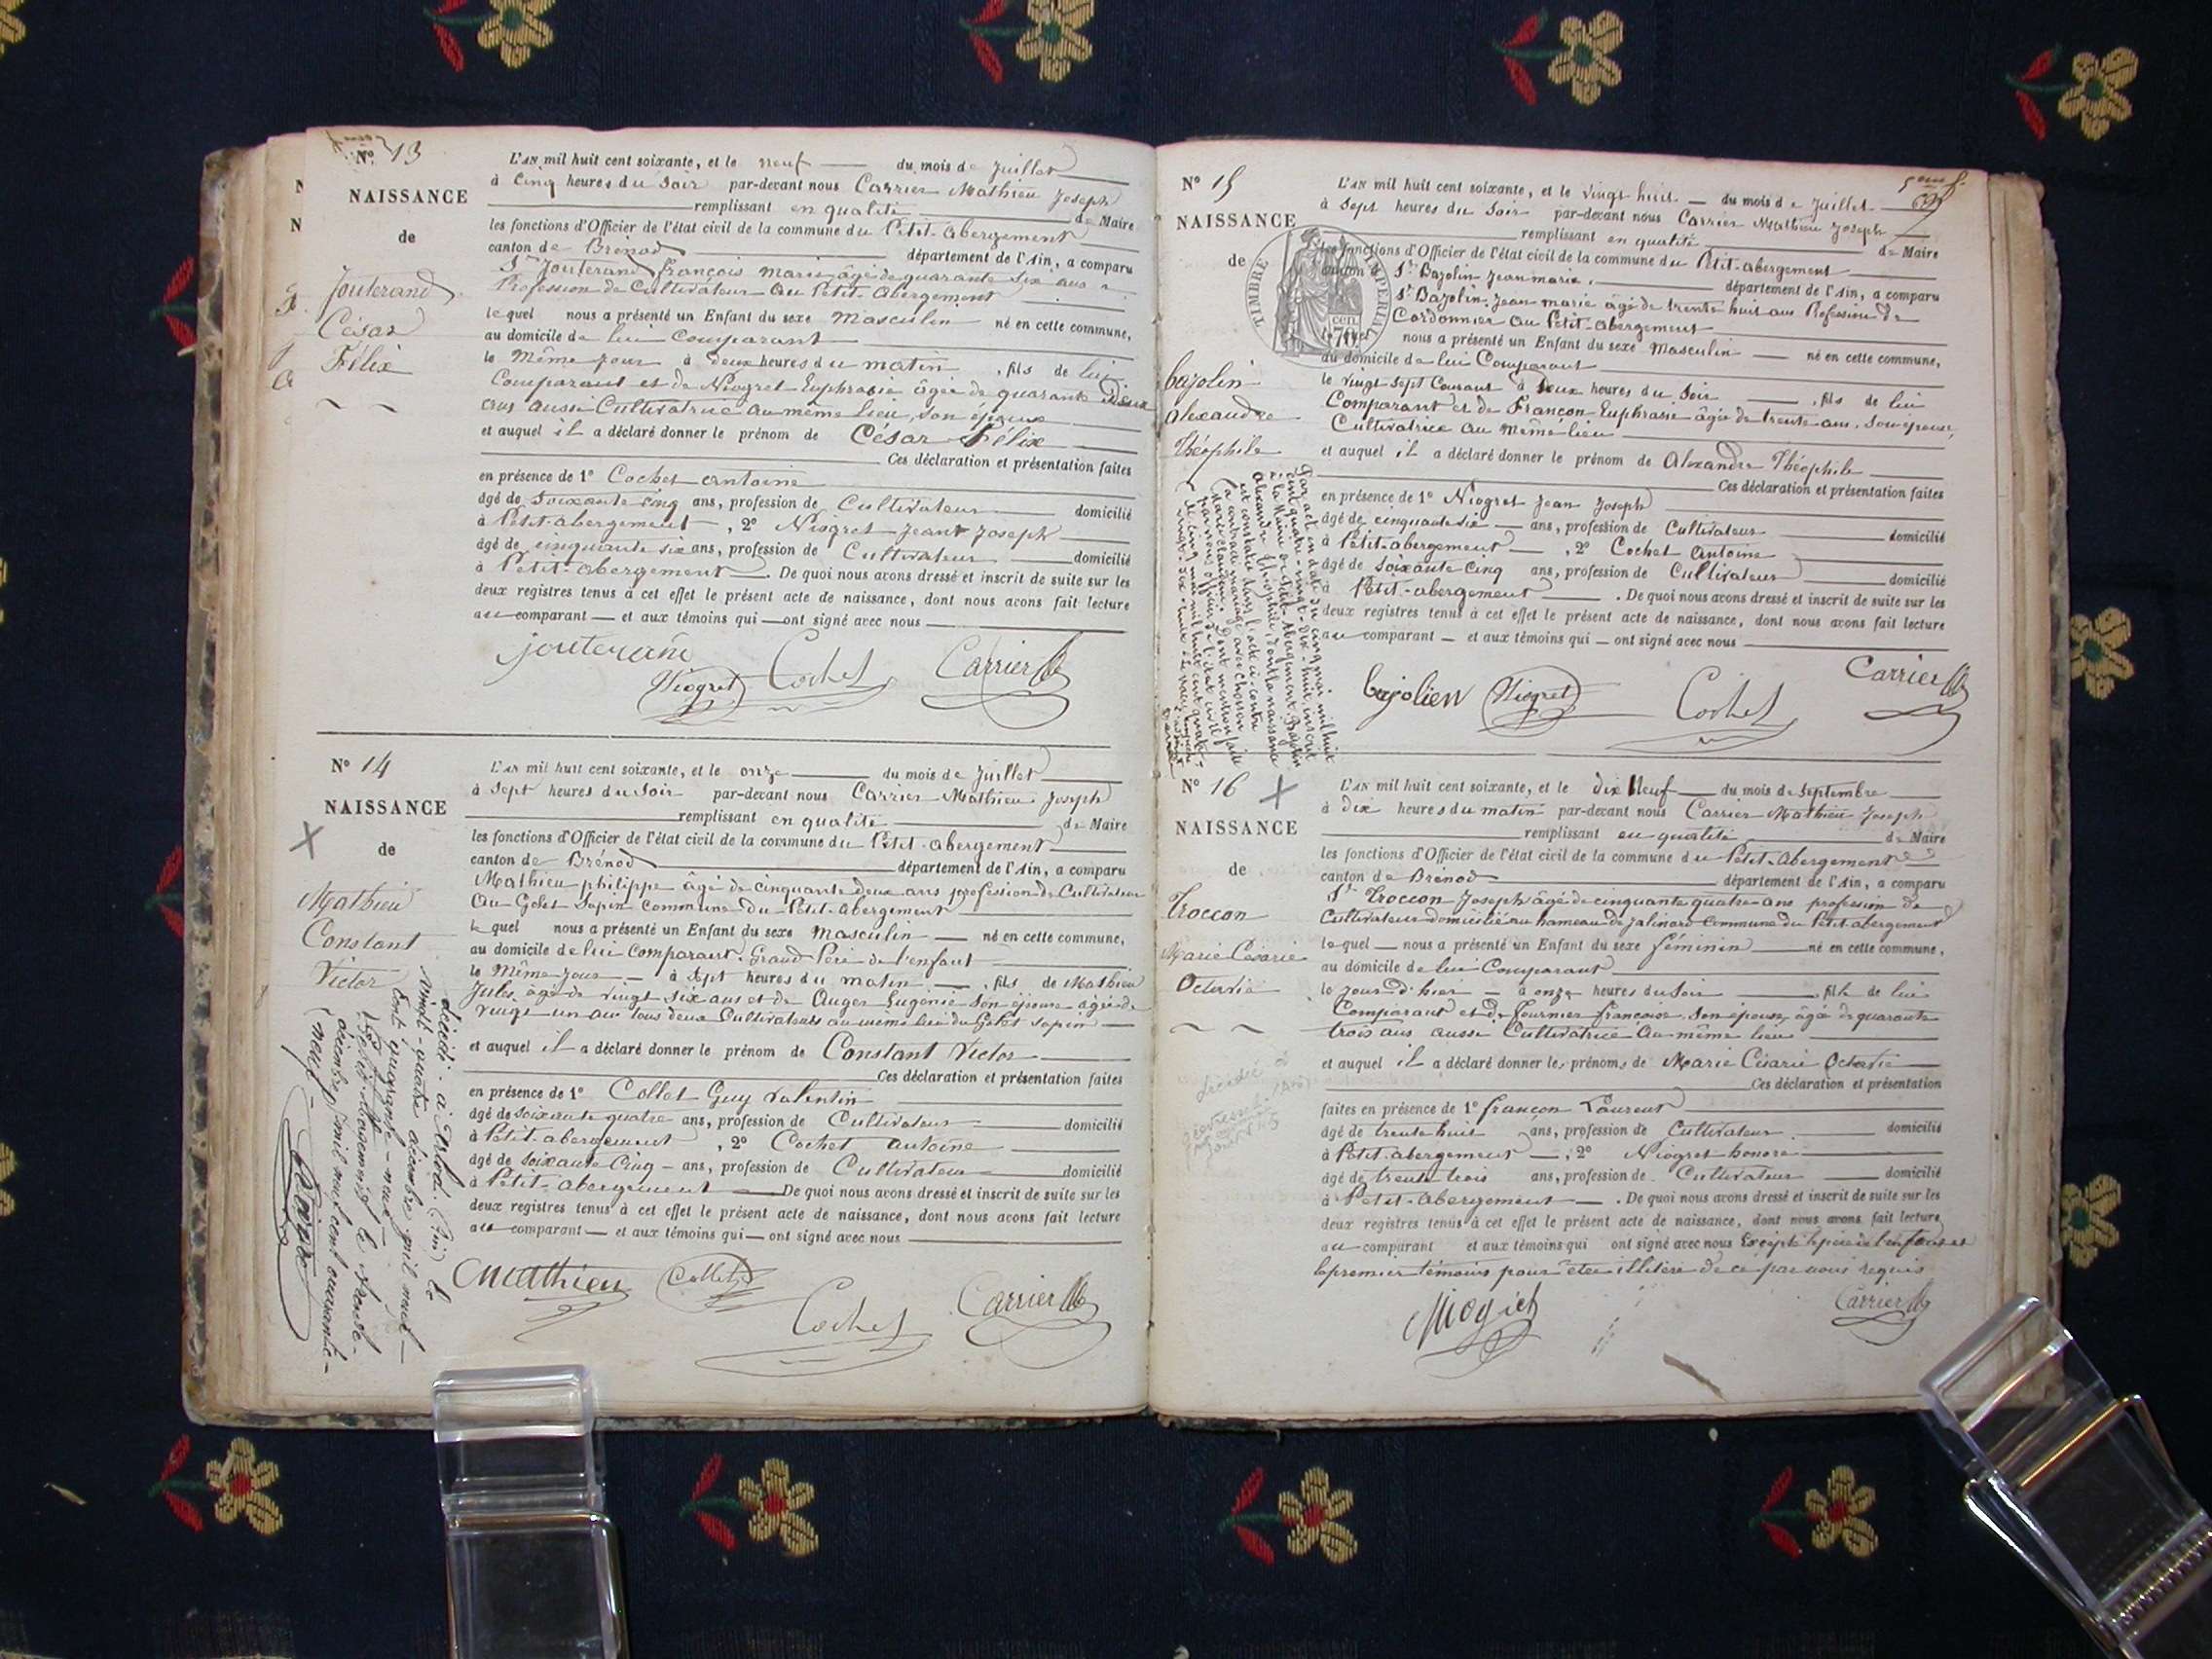 Nº 13
NAISSANCE
de
Jouterand
César
Félix
L'AN mil huit cent soixante, et le neuf du mois de Juillet
à cinq heures du soir par-devant nous Carrier Mathieu Joseph
remplissant en qualité de Maire
les fonctions d'Officier de l'état civil de la commune du Petit-abergement
canton de Brénod département de l'Ain, a comparu
Sr Jouterand françois marie âgé de quarante six ans
Profession de Cultivateur au Petit-abergement
lequel nous a présenté un Enfant du sexe Masculin né en cette commune,
au domicile de lui Comparant
le même jour à deux heures du matin, fils de lui
Comparant et de Niogret Euphrasie âgée de quarante deux
ans aussi Cultivatrice au même lieu, son épouse
et auquel il a déclaré donner le prénom de César Félix
Ces déclaration et présentation faites
en présence de 1º Cochet antoine
âgé de soixante cinq ans, profession de Cultivateur domicilié
à Petit-abergement, 2º Niogret Jean Joseph
âgé de cinquante six ans, profession de Cultivateur domicilié
à Petit-abergement. De quoi nous avons dressé et inscrit de suite sur les
deux registres tenus à cet effet le présent acte de naissance, dont nous avons fait lecture
au comparant et aux témoins qui ont signé avec nous
jouterand
Niogret Cochet Carrier
Nº 14
NAISSANCE
de
Mathieu
Constant
Victor
L'AN mil huit cent soixante, et le onze du mois de Juillet
à sept heures du soir par-devant nous Carrier Mathieu Joseph
remplissant en qualité de Maire
les fonctions d'Officier de l'état civil de la commune du Petit-abergement
canton de Brénod département de l'Ain, a comparu
Mathieu philippe âgé de cinquante deux ans profession de Cultivateur
au Golet Sapin commune du Petit-abergement
lequel nous a présenté un Enfant du sexe Masculin né en cette commune,
au domicile de lui Comparant Grand Père de l'enfant
le même jour à sept heures du matin, fils de Mathieu
Jules âgé de vingt six ans et de Auger Eugénie son épouse âgée de
vingt un ans tous deux Cultivateurs au même lieu du Golet Sapin
et auquel il a déclaré donner le prénom de Constant Victor
Ces déclaration et présentation faites
en présence de 1º Collet Guy Valentin
âgé de soixante quatre ans, profession de Cultivateur domicilié
à Petit-abergement, 2º Cochet antoine
âgé de soixante cinq ans, profession de Cultivateur domicilié
à Petit-abergement De quoi nous avons dressé et inscrit de suite sur les
deux registres tenus à cet effet le présent acte de naissance, dont nous avons fait lecture
au comparant et aux témoins qui ont signé avec nous
Mathieu Collet
Cochet Carrier
décédé à Arlod (Ain) le
vingt-quatre décembre mil neuf
cent quarante-neuf
le trente
décembre mil neuf cent quarante-
neuf
Nº 15
NAISSANCE
de
TIMBRE IMPERIAL
70 cen.
bajolin
alexandre
Théophile
L'AN mil huit cent soixante, et le vingt huit du mois de Juillet
à sept heures du soir par-devant nous Carrier Mathieu Joseph
remplissant en qualité de Maire
les fonctions d'Officier de l'état civil de la commune du Petit-abergement
canton de Sr Bajolin Jean marie département de l'Ain, a comparu
Sr Bajolin Jean marie âgé de trente huit ans Profession de
Cordonnier au Petit-abergement
lequel nous a présenté un Enfant du sexe Masculin né en cette commune,
au domicile de lui Comparant
le vingt sept Courant à deux heures du soir, fils de lui
Comparant et de Françon Euphrasie âgée de trente ans, son épouse,
Cultivatrice au même lieu
et auquel il a déclaré donner le prénom de Alexandre Théophile
Ces déclaration et présentation faites
en présence de 1º Niogret Jean Joseph
âgé de cinquante six ans, profession de Cultivateur domicilié
à Petit-abergement, 2º Cochet antoine
âgé de soixante cinq ans, profession de Cultivateur domicilié
à Petit-abergement. De quoi nous avons dressé et inscrit de suite sur les
deux registres tenus à cet effet le présent acte de naissance, dont nous avons fait lecture
au comparant et aux témoins qui ont signé avec nous
bajolien Niogret Cochet Carrier
Par acte en date du cinq mai mil huit
cent quatre-vingt-dix-huit, inscrit
à la Mairie de Petit-Abergement, Bajolin
Alexandre Théophile, dont la naissance
est constatée dans l'acte ci-contre
a contracté mariage avec
Nº 16
NAISSANCE
de
Troccon
Marie Césarie
Octavie
L'AN mil huit cent soixante, et le dix Neuf du mois de Septembre
à dix heures du matin par-devant nous Carrier Mathieu Joseph
remplissant en qualité de Maire
les fonctions d'Officier de l'état civil de la commune du Petit-Abergement
canton de Brénod département de l'Ain, a comparu
Sr Troccon Joseph âgé de cinquante quatre ans profession de
Cultivateur domicilié au hameau de Jalinard Commune du Petit-abergement
lequel nous a présenté un Enfant du sexe féminin né en cette commune,
au domicile de lui Comparant
le jour d'hier à onze heures du soir, fille de lui
Comparant et de Fournier françoise son épouse, âgée de quarante
trois ans aussi Cultivatrice au même lieu
et auquel il a déclaré donner les prénoms de Marie Césarie Octavie
Ces déclaration et présentation
faites en présence de 1º françon Laurent
âgé de trente huit ans, profession de Cultivateur domicilié
à Petit-abergement, 2º Niogret honoré
âgé de trente trois ans, profession de Cultivateur domicilié
à Petit-abergement. De quoi nous avons dressé et inscrit de suite sur les
deux registres tenus à cet effet le présent acte de naissance, dont nous avons fait lecture
au comparant et aux témoins qui ont signé avec nous Excepté le père de l'enfant et
le premier témoins pour être illitéré de ce par nous requis
Niogret Carrier